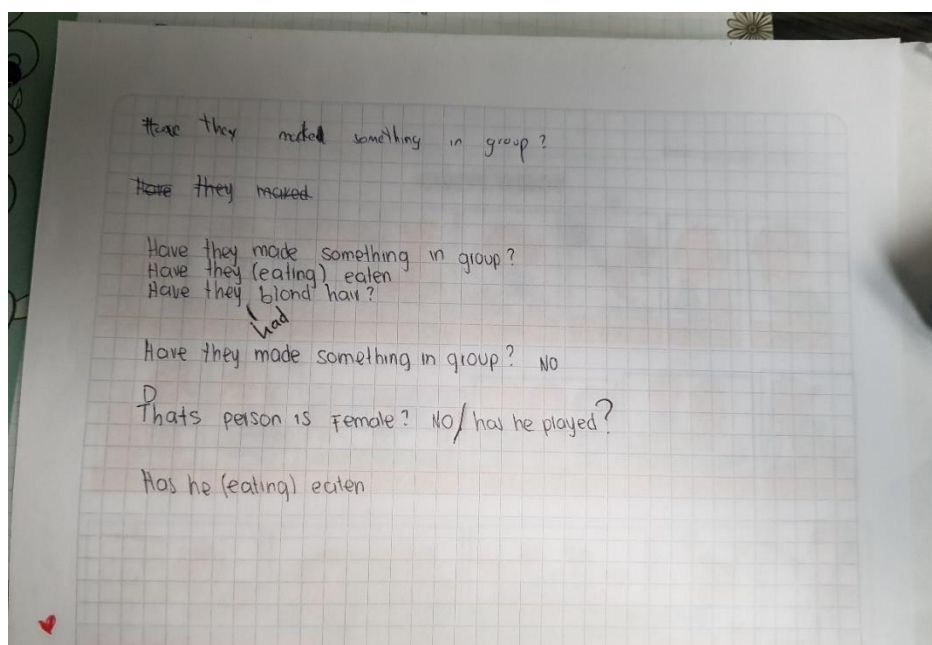 Have they maked something in group?
Have they maked
Have they made something in group?
Have they (eating) eaten
Have they blond hair?
had
Have they made something in group? NO
D
Thats person is Female? NO/has he played?
Has he (eating) eaten